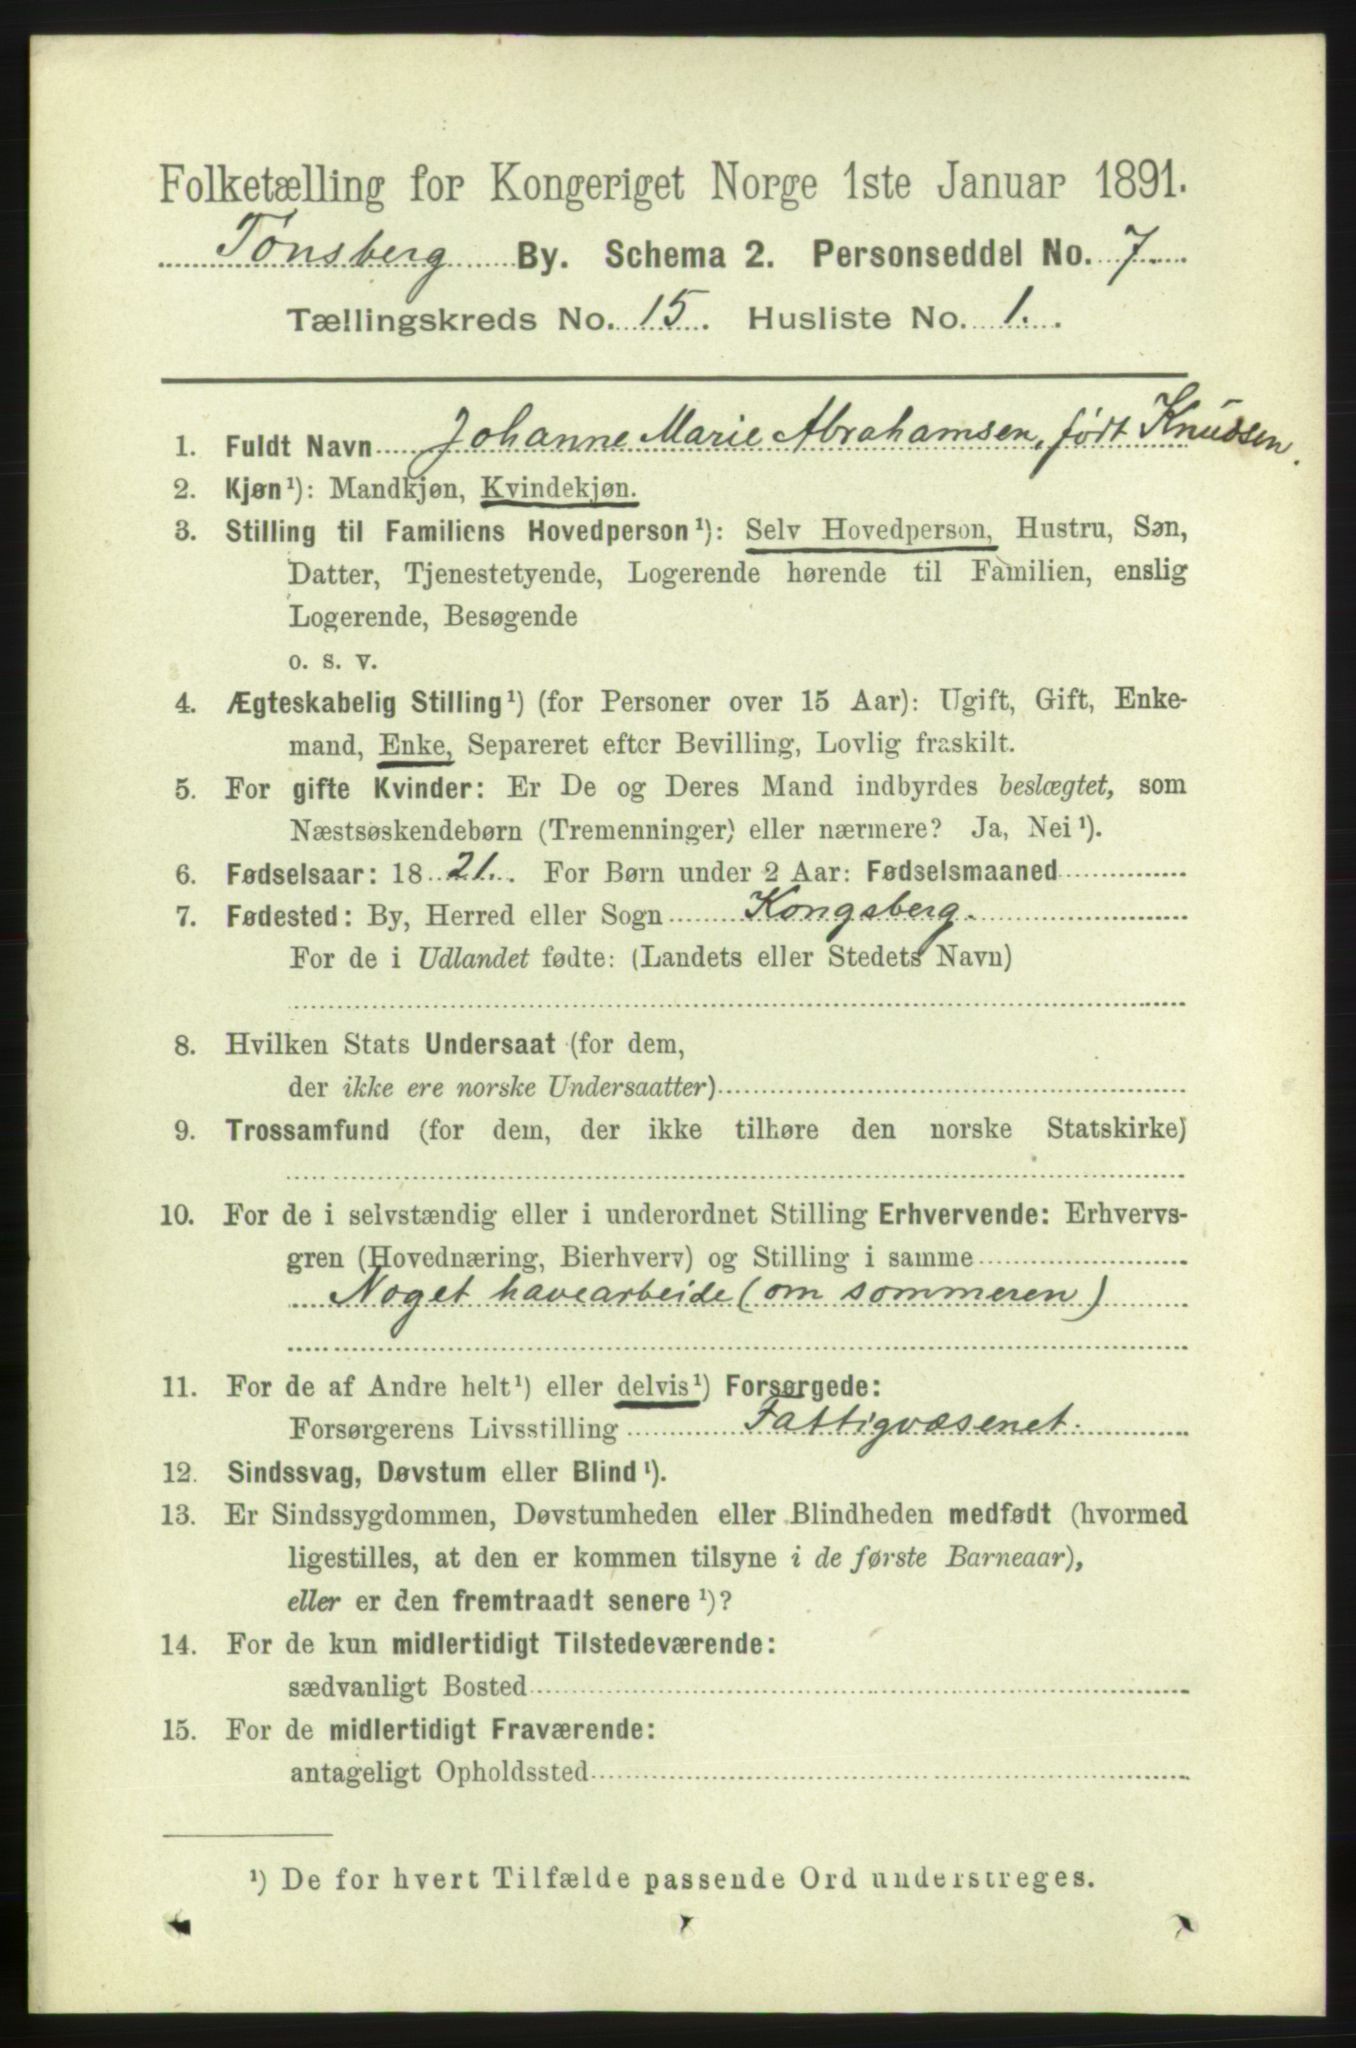 Folketælling for Kongeriget Norge 1ste Januar 1891.
Tønsberg By. Schema 2. Personseddel No. 7.
Tællingskreds No. 15. Husliste No. 1.
1. Fuldt Navn Johanne Marie Abrahamsen, født Knudsen.
2. Kjøn¹): Mandkjøn, Kvindekjøn.
3. Stilling til Familiens Hovedperson¹): Selv Hovedperson, Hustru, Søn,
Datter, Tjenestetyende, Logerende hørende til Familien, enslig
Logerende, Besøgende
o. s. v.
4. Ægteskabelig Stilling¹) (for Personer over 15 Aar): Ugift, Gift, Enke-
mand, Enke, Separeret efter Bevilling, Lovlig fraskilt.
5. For gifte Kvinder: Er De og Deres Mand indbyrdes beslægtet, som
Næstsøskendebørn (Tremenninger) eller nærmere? Ja, Nei¹).
6. Fødselsaar: 1821. For Børn under 2 Aar: Fødselsmaaned
7. Fødested: By, Herred eller Sogn Kongsberg.
For de i Udlandet fødte: (Landets eller Stedets Navn)
8. Hvilken Stats Undersaat (for dem,
der ikke ere norske Undersaatter)
9. Trossamfund (for dem, der ikke tilhøre den norske Statskirke)
10. For de i selvstændig eller i underordnet Stilling Erhvervende: Erhvervs-
gren (Hovednæring, Bierhverv) og Stilling i samme
Noget havearbeide (om sommeren)
11. For de af Andre helt¹) eller delvis¹) Forsørgede:
Forsørgerens Livsstilling Fattigvæsenet.
12. Sindssvag, Døvstum eller Blind¹).
13. Er Sindssygdommen, Døvstumheden eller Blindheden medfødt (hvormed
ligestilles, at den er kommen tilsyne i de første Barneaar),
eller er den fremtraadt senere¹)?
14. For de kun midlertidigt Tilstedeværende:
sædvanligt Bosted
15. For de midlertidigt Fraværende:
antageligt Opholdssted
¹) De for hvert Tilfælde passende Ord understreges.